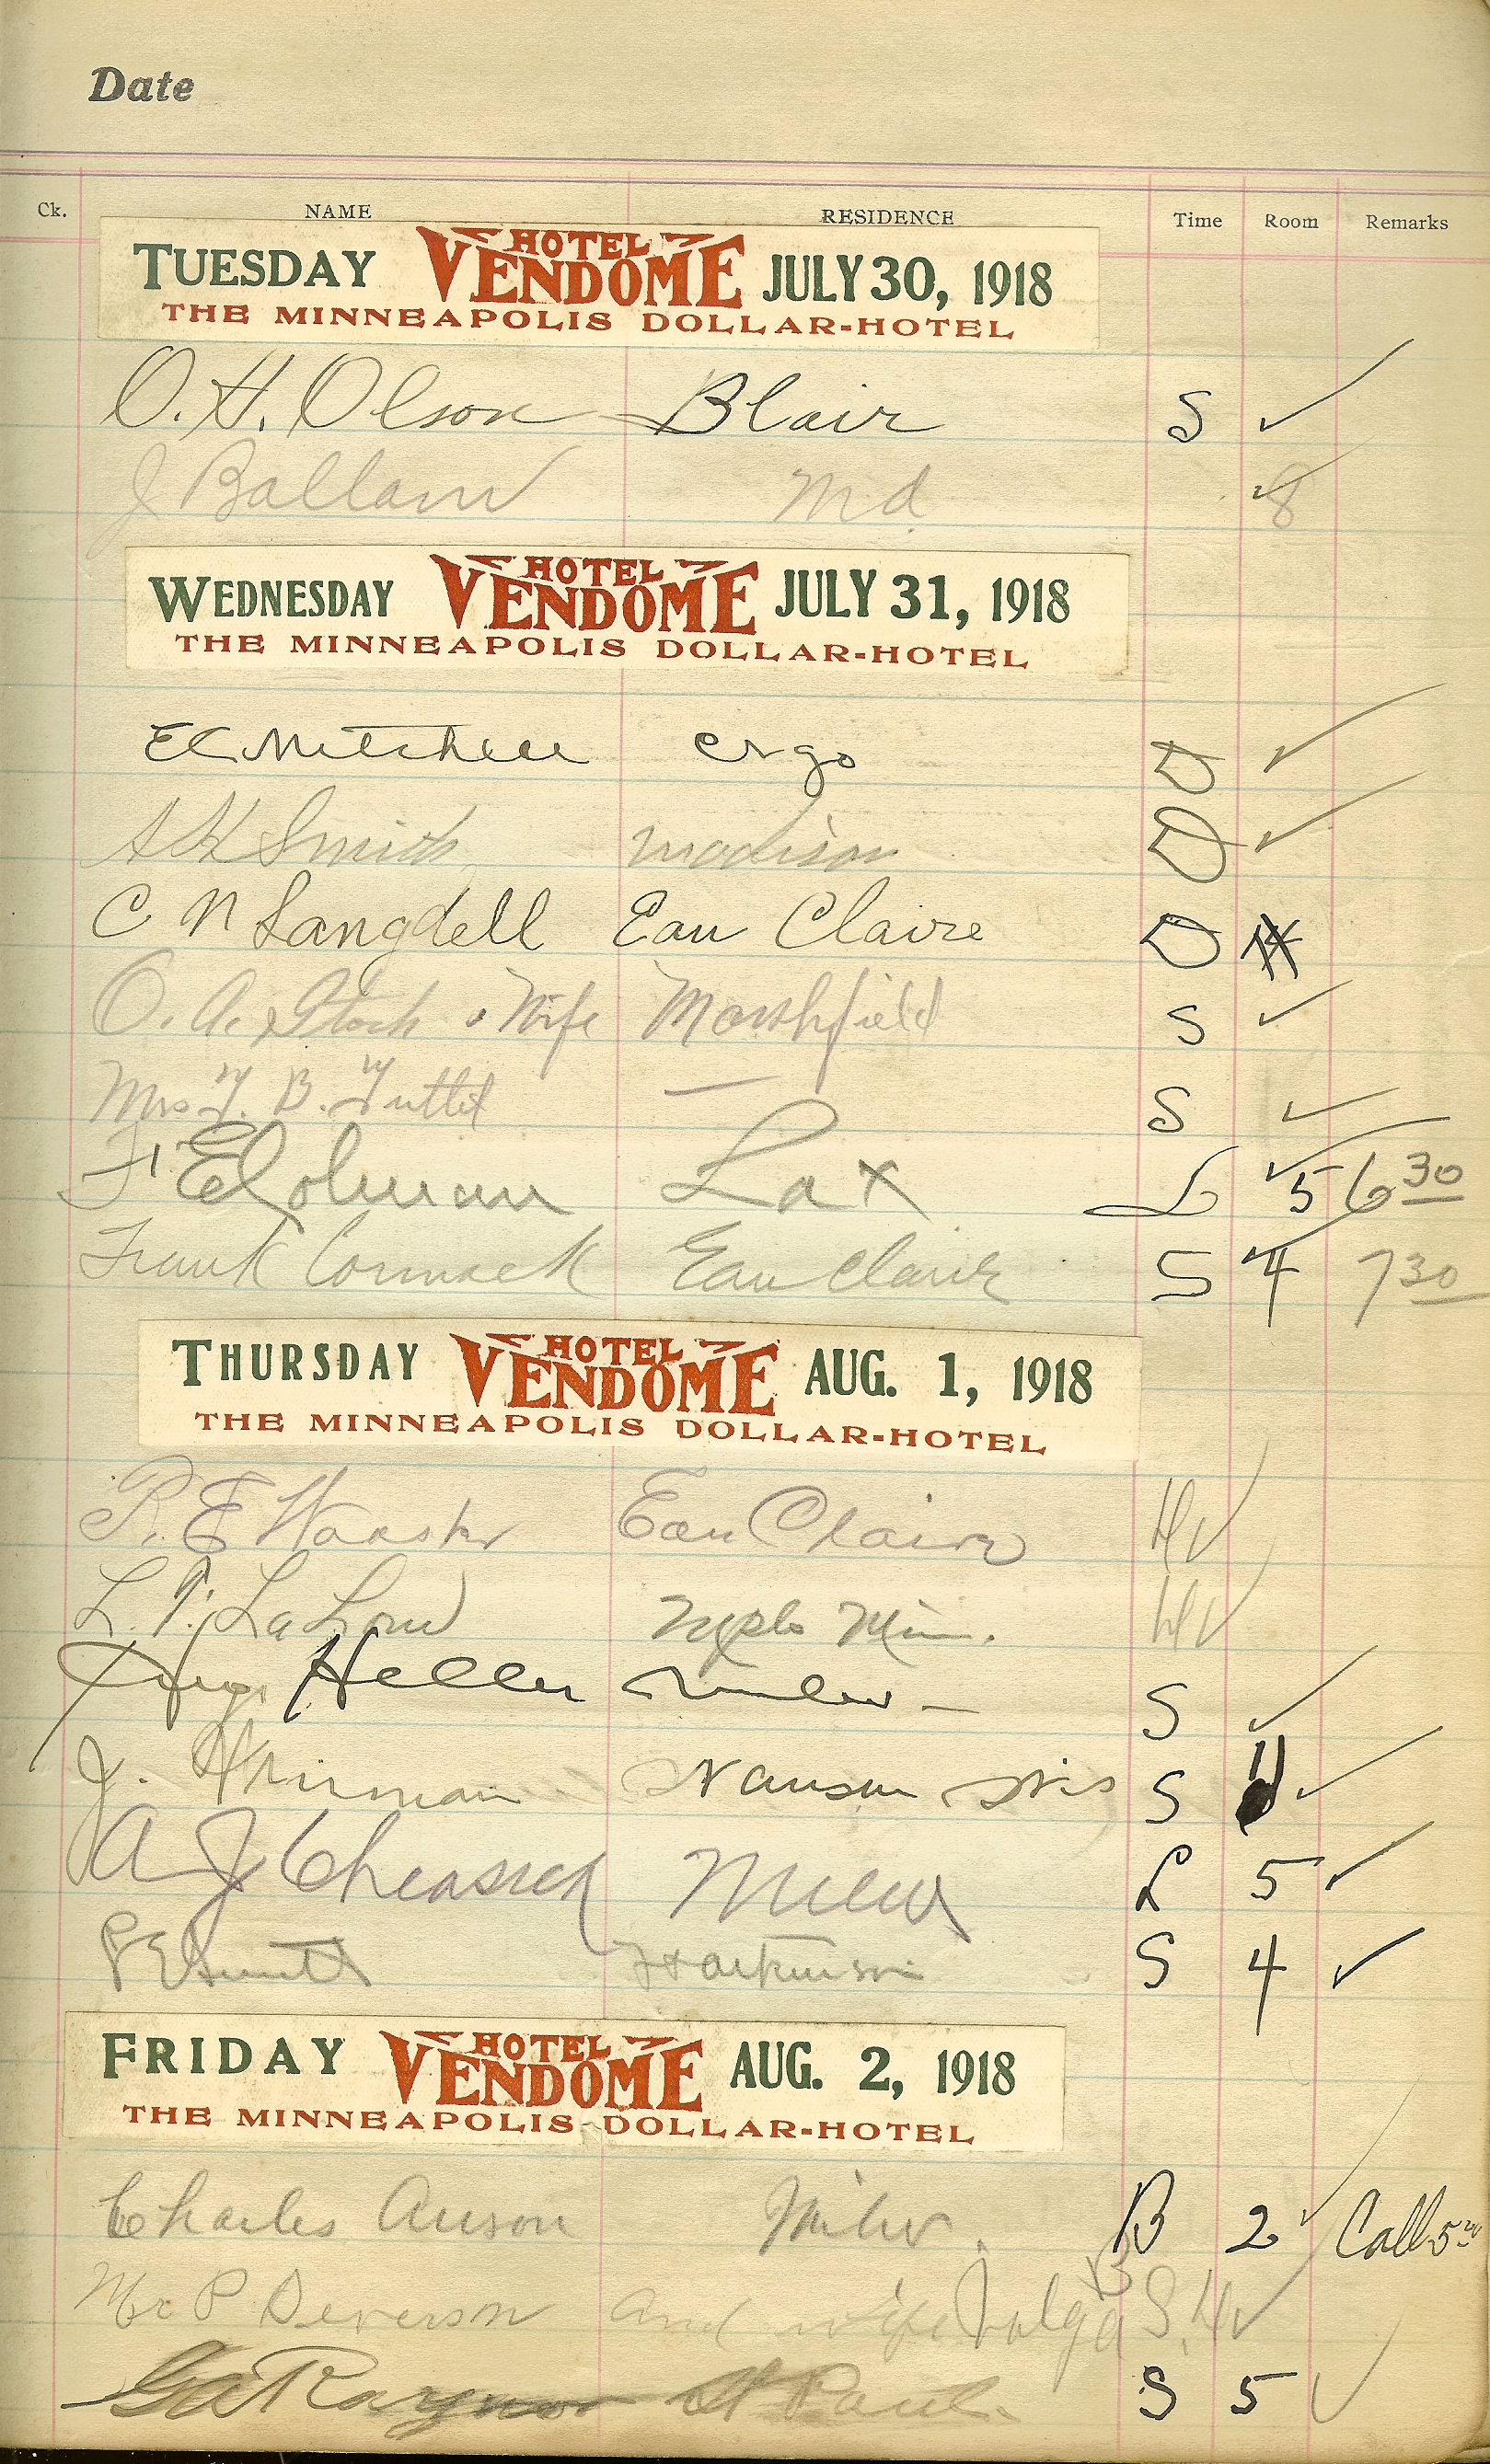 Date
Ck. NAME RESIDENCE Time Room Remarks
TUESDAY HOTEL VENDOME JULY 30, 1918
THE MINNEAPOLIS DOLLAR-HOTEL
O. H. Olson Blair S ✓
J Ballam Md 8 ✓
WEDNESDAY HOTEL VENDOME JULY 31, 1918
THE MINNEAPOLIS DOLLAR-HOTEL
EC Mitchell ergo D ✓
A H Smith Madison D ✓
C N Langdell Eau Claire D
O. A. Stock & Wife Marshfield S ✓
Mrs B. Tuttel — S ✓
Lax L 5 6 30
Frank Cormack Eau Claire S 4 7 30
THURSDAY HOTEL VENDOME AUG. 1, 1918
THE MINNEAPOLIS DOLLAR-HOTEL
R. E Eau Claire ✓
L. T. Mpls Minn. ✓
Heller S ✓
J. Wis S ✓
A J Milw L 5 ✓
S 4 ✓
FRIDAY HOTEL VENDOME AUG. 2, 1918
THE MINNEAPOLIS DOLLAR-HOTEL
Charles Anson Milw. B 2 ✓ Call 5
P Deverson and wife S. ✓
GA Raynor St Paul. S 5 ✓